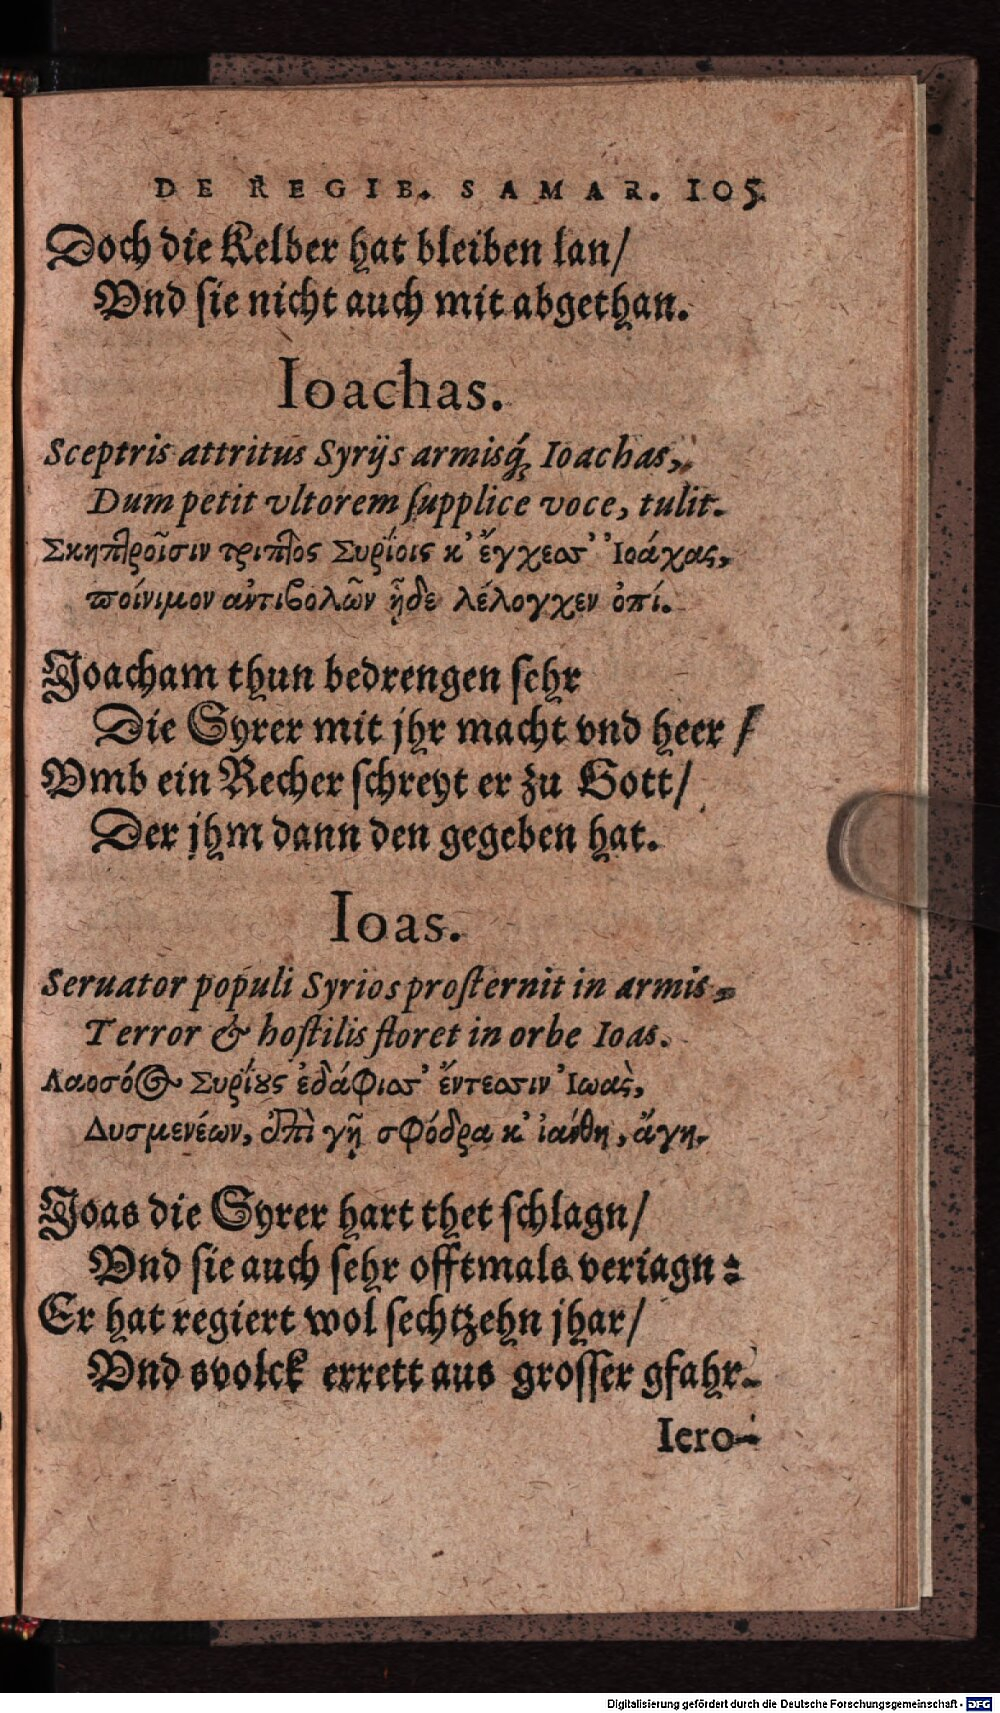 DE REGIB. SAMAR. 105.
Doch die Kelber hat bleiben lan/
Vnd sie nicht auch mit abgethan.
Ioachas.
Sceptris attritus Syrijs armisq́; Ioachas,
Dum petit vltorem ſupplice voce, tulit.
Σκηπτροῖσιν τριπτὸς Συρίοις κ' ἔγχεσ' Ἰοάχας,
ποίνιμον ἀντιβολῶν ᾗδε λέλογχεν ὀπί.
Joacham thun bedrengen ſehr
Die Syrer mit jhr macht vnd heer /
Vmb ein Recher ſchreyt er zu Gott/
Der jhm dann den gegeben hat.
Ioas.
Seruator populi Syrios proſternit in armis,
Terror & hoſtilis floret in orbe Ioas.
Λαοσόος Συρίους ἐδάφισσ' ἔντεσιν Ἰωὰς,
Δυσμενέων, ἐπὶ γῇ σφόδρα κ' ἰάνθη, ἄγη.
Joas die Syrer hart thet ſchlagn/
Vnd ſie auch ſehr offtmals veriagn:
Er hat regiert wol ſechtzehn jhar/
Vnd svolck errett aus groſſer gfahr.
Iero-
Digitalisierung gefördert durch die Deutsche Forschungsgemeinschaft - DFG